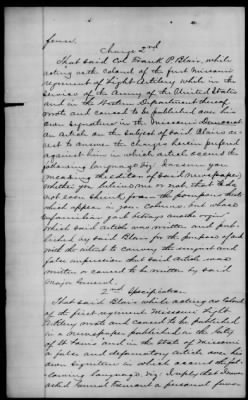 fense.
Charge 2nd
That said Col. Frank P. Blair, while
acting as the Colonel of the first Missouri
regiment of Light Artillery while in the
service of the Army of the United States
and in the Western Department thereof
wrote and caused to be published over his
own signature in the Missouri Democrat
an article on the subject of said Blair's
to answer the charges herein preferred
against him in which article occurred the
following language, viz:
meaning the editor of said newspaper
whether you believe me or not, that I do
not even shrink from the
which appear in your columns, but whose
betrays another origin
which said article was written and pub-
lished by said Blair for the purpose of and
with the intent to convey the corrupt and
false impression that said article was
written or caused to be written by said
Major General.
2nd Specification
That said Blair while acting as Colonel
of the first regiment Missouri Light
Artillery wrote and caused to be published
in a newspaper published in the City
of St Louis and in the state of Missouri
a false and defamatory article over his
own signature in which occurred the fol-
lowing language, viz: I
General Fremont a personal favor